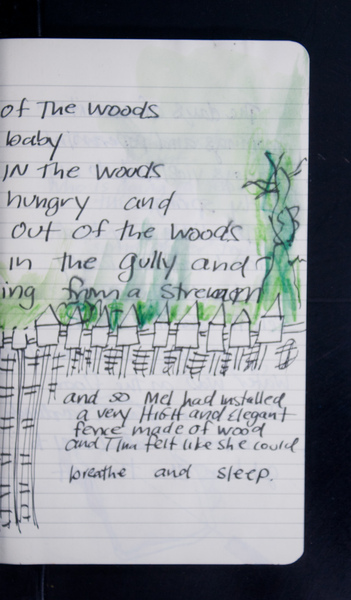 of The woods
baby
IN The woods
hungry and
out of the woods
in the gully and
ing from a stream
and so Mel had installed
a very HIGH and Elegant
fence made of wood
and Tina felt like she could
breathe and sleep.